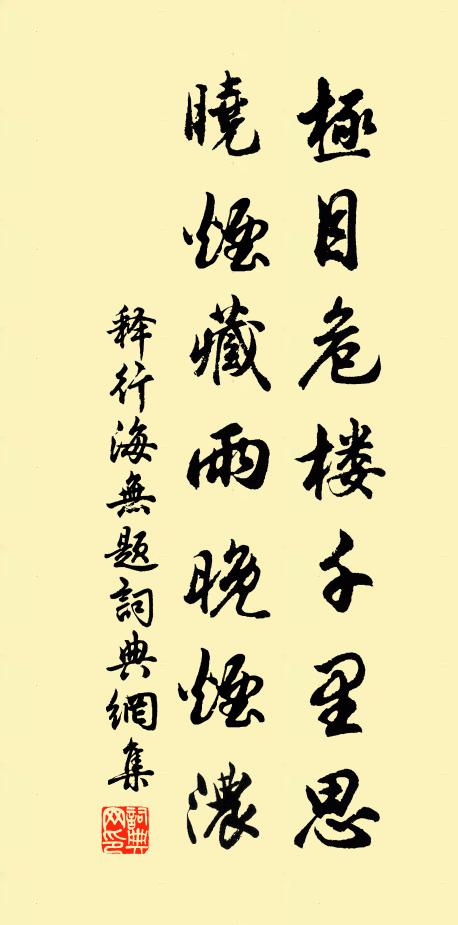 極目危楼千里思
曉煙藏雨晚煙濃
释行海無题詞典網集
詞典网印